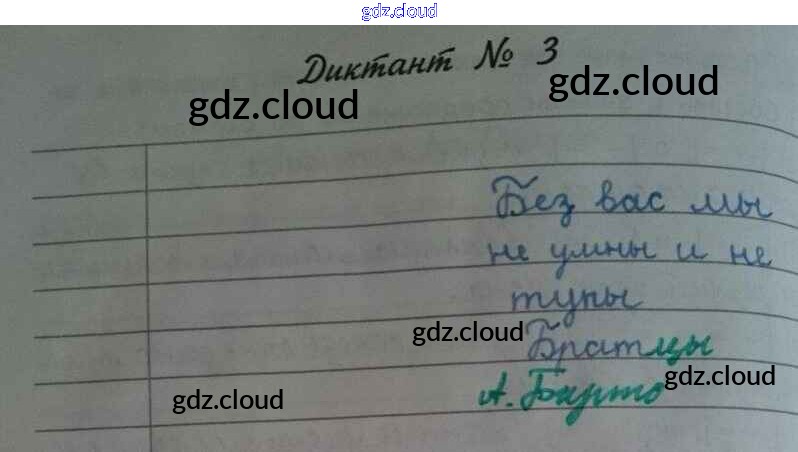 gdz.cloud
Диктант № 3
gdz.cloud
gdz.cloud
Без вас мы
не умны и не
тупы
gdz.cloud
Братцы
gdz.cloud
gdz.cloud
А. Барто